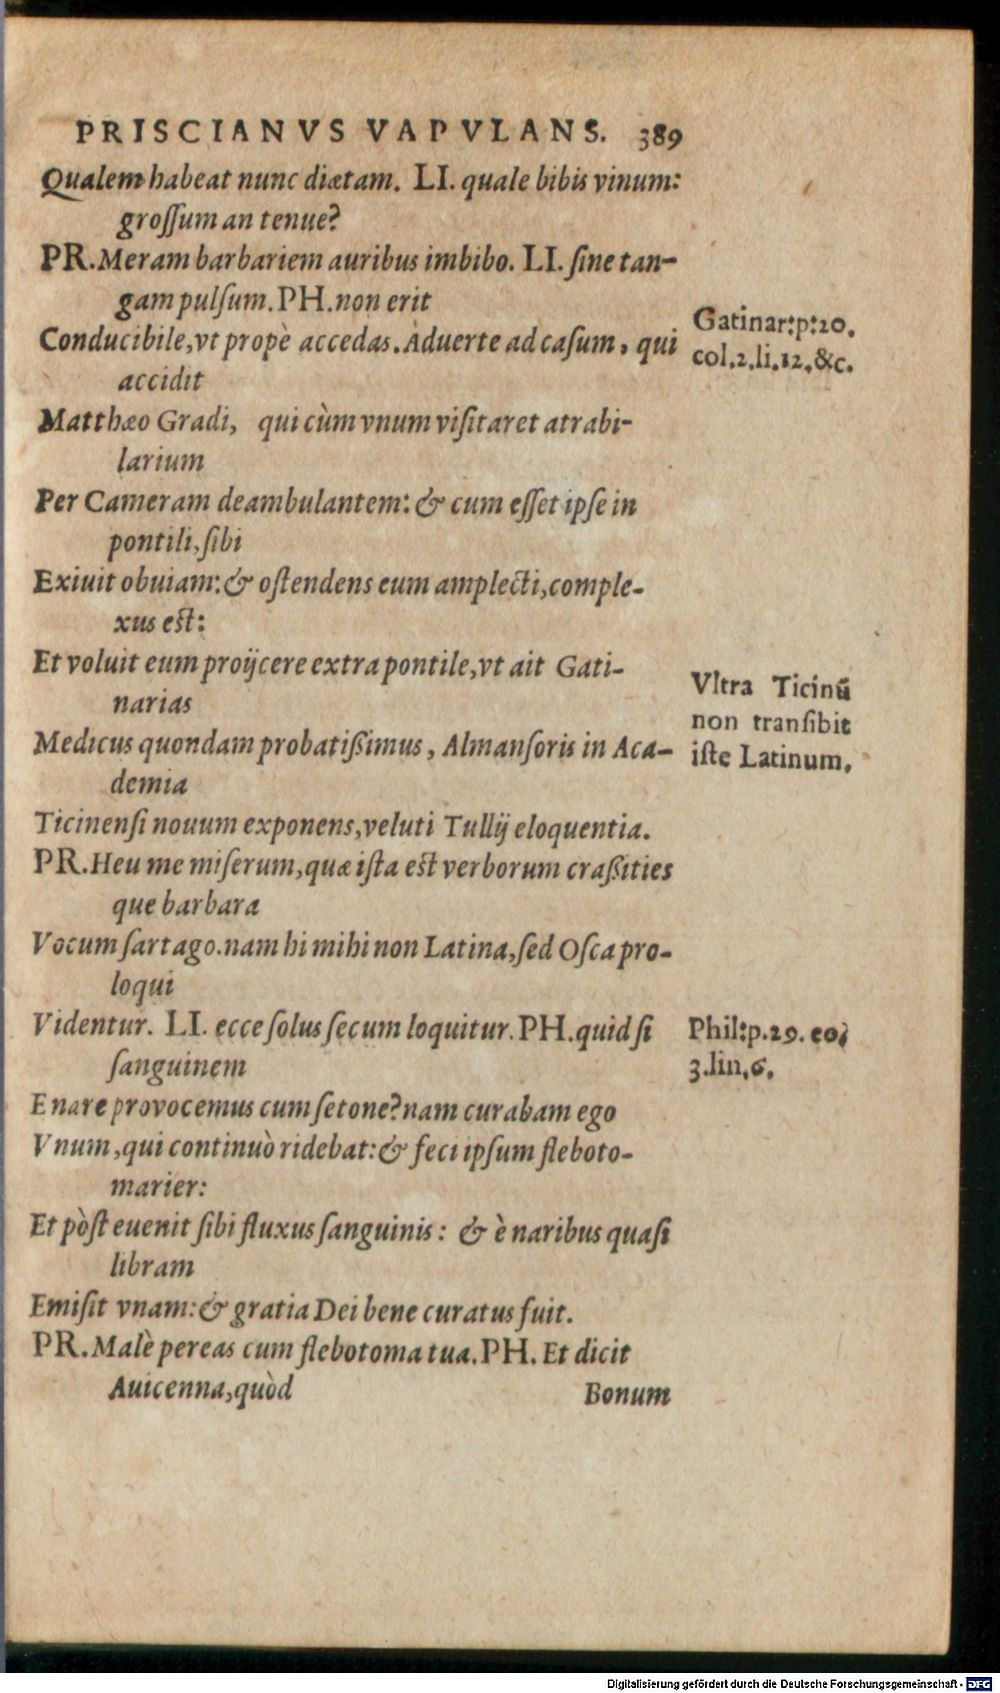 PRISCIANVS VAPVLANS. 389
Qualem habeat nunc diætam. LI. quale bibis vinum:
grossum an tenue?
PR. Meram barbariem auribus imbibo. LI. sine tan-
gam pulsum. PH. non erit
Gatinar: p: 20.
Conducibile, vt propè accedas. Aduerte ad casum, qui
col. 2. li. 12, &c.
accidit
Matthæo Gradi, qui cùm vnum visitaret atrabi-
larium
Per Cameram deambulantem: & cum esset ipse in
pontili, sibi
Exiuit obuiam: & ostendens eum amplecti, comple-
xus est:
Et voluit eum proijcere extra pontile, vt ait Gati-
Vltra Ticinū
narias
non transibit
Medicus quondam probatißimus, Almansoris in Aca-
iste Latinum.
demia
Ticinensi nouum exponens, veluti Tullij eloquentia.
PR. Heu me miserum, quæ ista est verborum craßities
que barbara
Vocum sartago. nam hi mihi non Latina, sed Osca pro-
loqui
Videntur. LI. ecce solus secum loquitur. PH. quid si
Phil: p. 29. co;
sanguinem
3. lin, 6.
E nare provocemus cum setone? nam curabam ego
Vnum, qui continuò ridebat: & feci ipsum fleboto-
marier:
Et pòst euenit sibi fluxus sanguinis: & è naribus quasi
libram
Emisit vnam: & gratia Dei bene curatus fuit.
PR. Malè pereas cum flebotoma tua. PH. Et dicit
Auicenna, quòd
Bonum
Digitalisierung gefördert durch die Deutsche Forschungsgemeinschaft - DFG